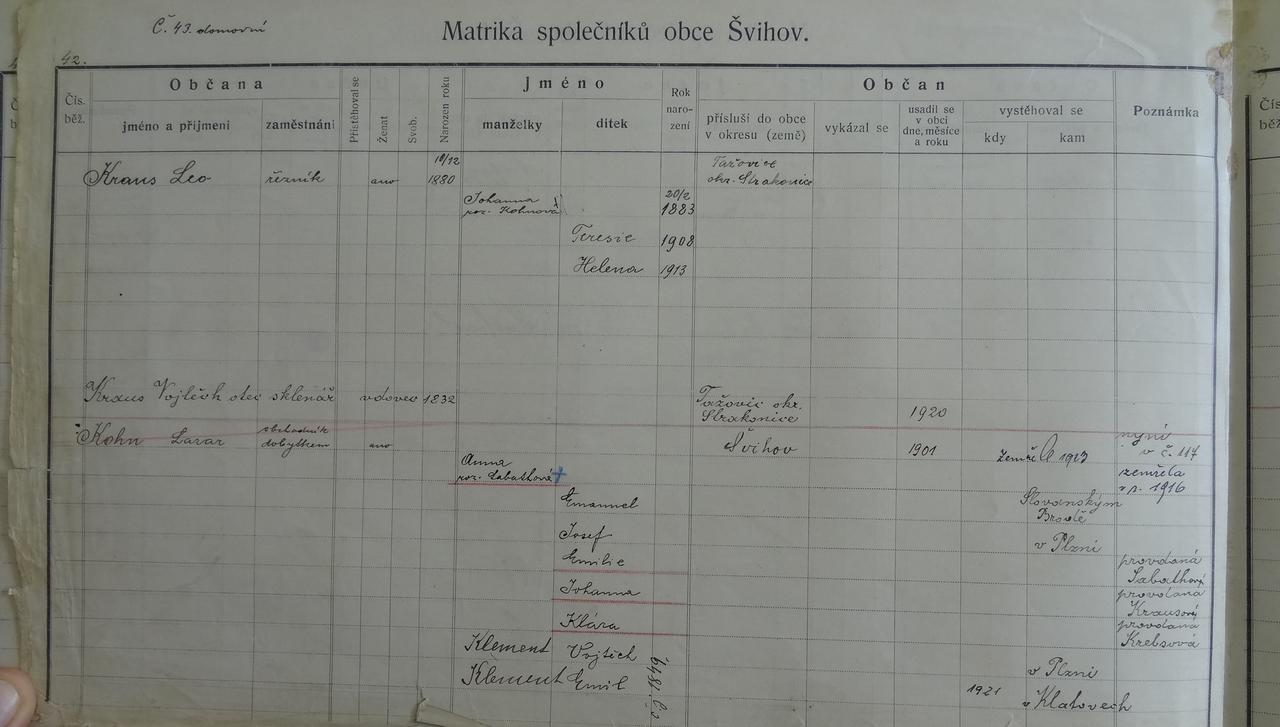 Č. 43. domovní
Matrika společníků obce Švihov.
42.
Čís. běž.
Občana
jméno a příjmení
zaměstnání
Přistěhoval se
Ženat
Svob.
Narozen roku
Jméno
manželky
dítek
Rok narození
Občan
přísluší do obce v okresu (země)
vykázal se
usadil se v obci dne, měsíce a roku
vystěhoval se
kdy
kam
Poznámka
Kraus Leo řezník ano 10/12 1880 Tažovice okr. Strakonice
Johanna roz. Kohnová 20/2 1883
Teresie 1908
Helena 1913
Kraus Vojtěch otec sklenář vdovec 1832 Tažovic okr. Strakonice 1920
Kohn Lazar obchodník dobytkem ano Švihov 1901 zemřel 1913 nyní v č. 117
Anna roz. Sabathová zemřela r. 1916
Emanuel Slovanským Brodě
Josef v Plzni
Emilie provdaná Sabathová
Johanna provdaná Krausová
Klára provdaná Krebsová
Klement Vojtěch v Plzni
Klement Emil 1921 v Klatovech